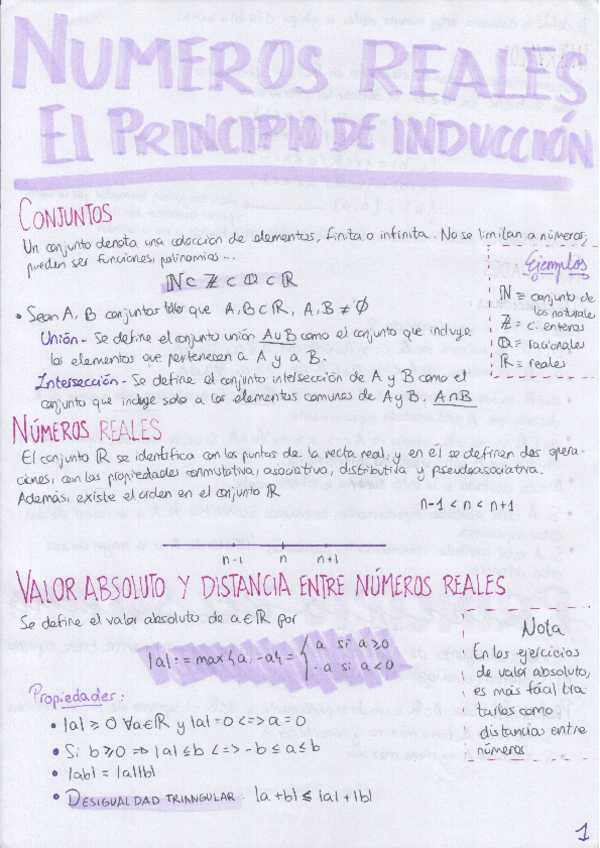 NUMEROS REALES
El PRINCIPIO DE INDUCCIÓN
CONJUNTOS
Un conjunto denota una colección de elementos, finita o infinita. No se limitan a números,
pueden ser funciones, polinomios...
ℕ ⊂ ℤ ⊂ ℚ ⊂ ℝ
• Sean A, B conjuntos tales que A, B ⊂ ℝ, A, B ≠ ∅
Unión - Se define el conjunto unión A∪B como el conjunto que incluye
los elementos que pertenecen a A y a B.
Intersección - Se define el conjunto intersección de A y B como el
conjunto que incluye solo a los elementos comunes de A y B, A∩B
Ejemplos
ℕ ≡ conjunto de
los naturales
ℤ ≡ c. enteros
ℚ ≡ racionales
ℝ ≡ reales
NÚMEROS REALES
El conjunto ℝ se identifica con los puntos de la recta real, y en él se definen dos opera-
ciones, con las propiedades conmutativa, asociativa, distributiva y pseudoasociativa.
Además, existe el orden en el conjunto ℝ
n-1 < n < n+1
n-1 n n+1
VALOR ABSOLUTO Y DISTANCIA ENTRE NÚMEROS REALES
Se define el valor absoluto de a∈ℝ por
|a| := max{a, -a} = { a si a≥0
-a si a<0
Propiedades:
• |a| ≥ 0 ∀a∈ℝ y |a| = 0 <=> a = 0
• Si b ≥ 0 => |a| ≤ b <=> -b ≤ a ≤ b
• |ab| = |a||b|
• DESIGUALDAD TRIANGULAR: |a+b| ≤ |a| + |b|
Nota
En los ejercicios
de valor absoluto,
es más fácil tra-
tarlos como
distancias entre
números
1